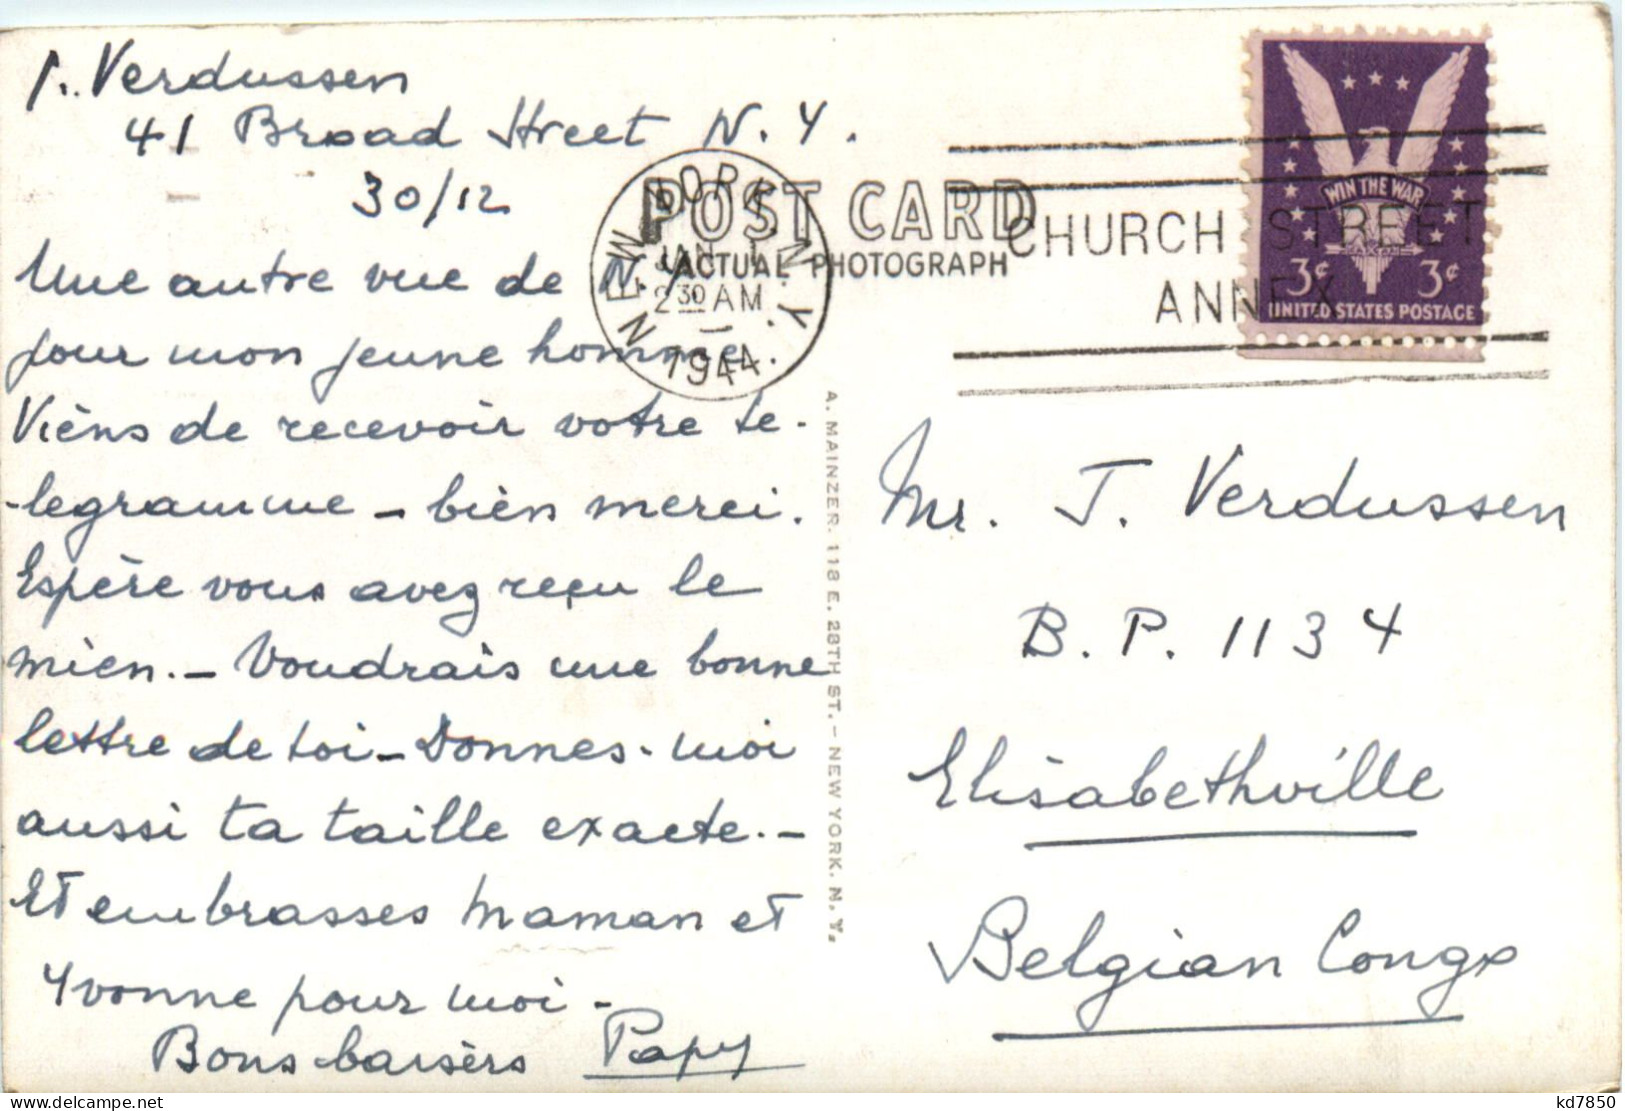 Verdussen
41 Broad Street N.Y.
30/12
Une autre vue de N.Y.
pour mon jeune homme.
Vièns de recevoir votre te-
-legramme – bièn merci.
Espère vous avez reçu le
mien. – Voudrais une bonne
lettre de toi – Donnes-moi
aussi ta taille exacte. –
Et embrasses Maman et
Yvonne pour moi –
Bons baisèrs Papy
POST CARD
ACTUAL PHOTOGRAPH
NEW YORK, N.Y.
JAN 1
2 30 AM
1944
CHURCH STREET
ANNEX
WIN THE WAR
3¢ 3¢
UNITED STATES POSTAGE
A. MAINZER. 118 E. 28TH ST. – NEW YORK. N. Y.
Mr. J. Verdussen
B. P. 1134
Elisabethville
Belgian Congo
kd7850